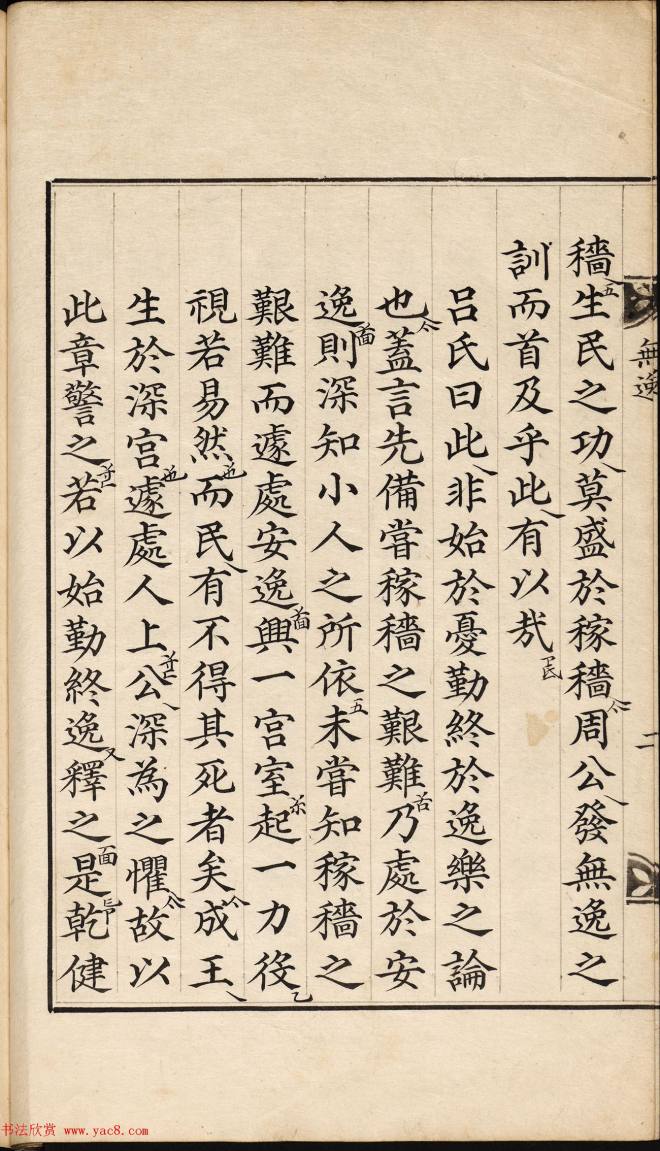 穡生民之功莫盛於稼穡周公發無逸之
訓而首及乎此有以㢤
吕氏曰此非始於憂勤終於逸樂之論
也蓋言先備嘗稼穡之艱難乃處於安
逸則深知小人之所依未嘗知稼穡之
艱難而遽處安逸興一宫室起一力役
視若易然而民有不得其死者矣成王
生於深宫遽處人上公深為之懼故以
此章警之若以始勤終逸釋之是乾健
無逸
二
书法欣赏 www.yac8.com